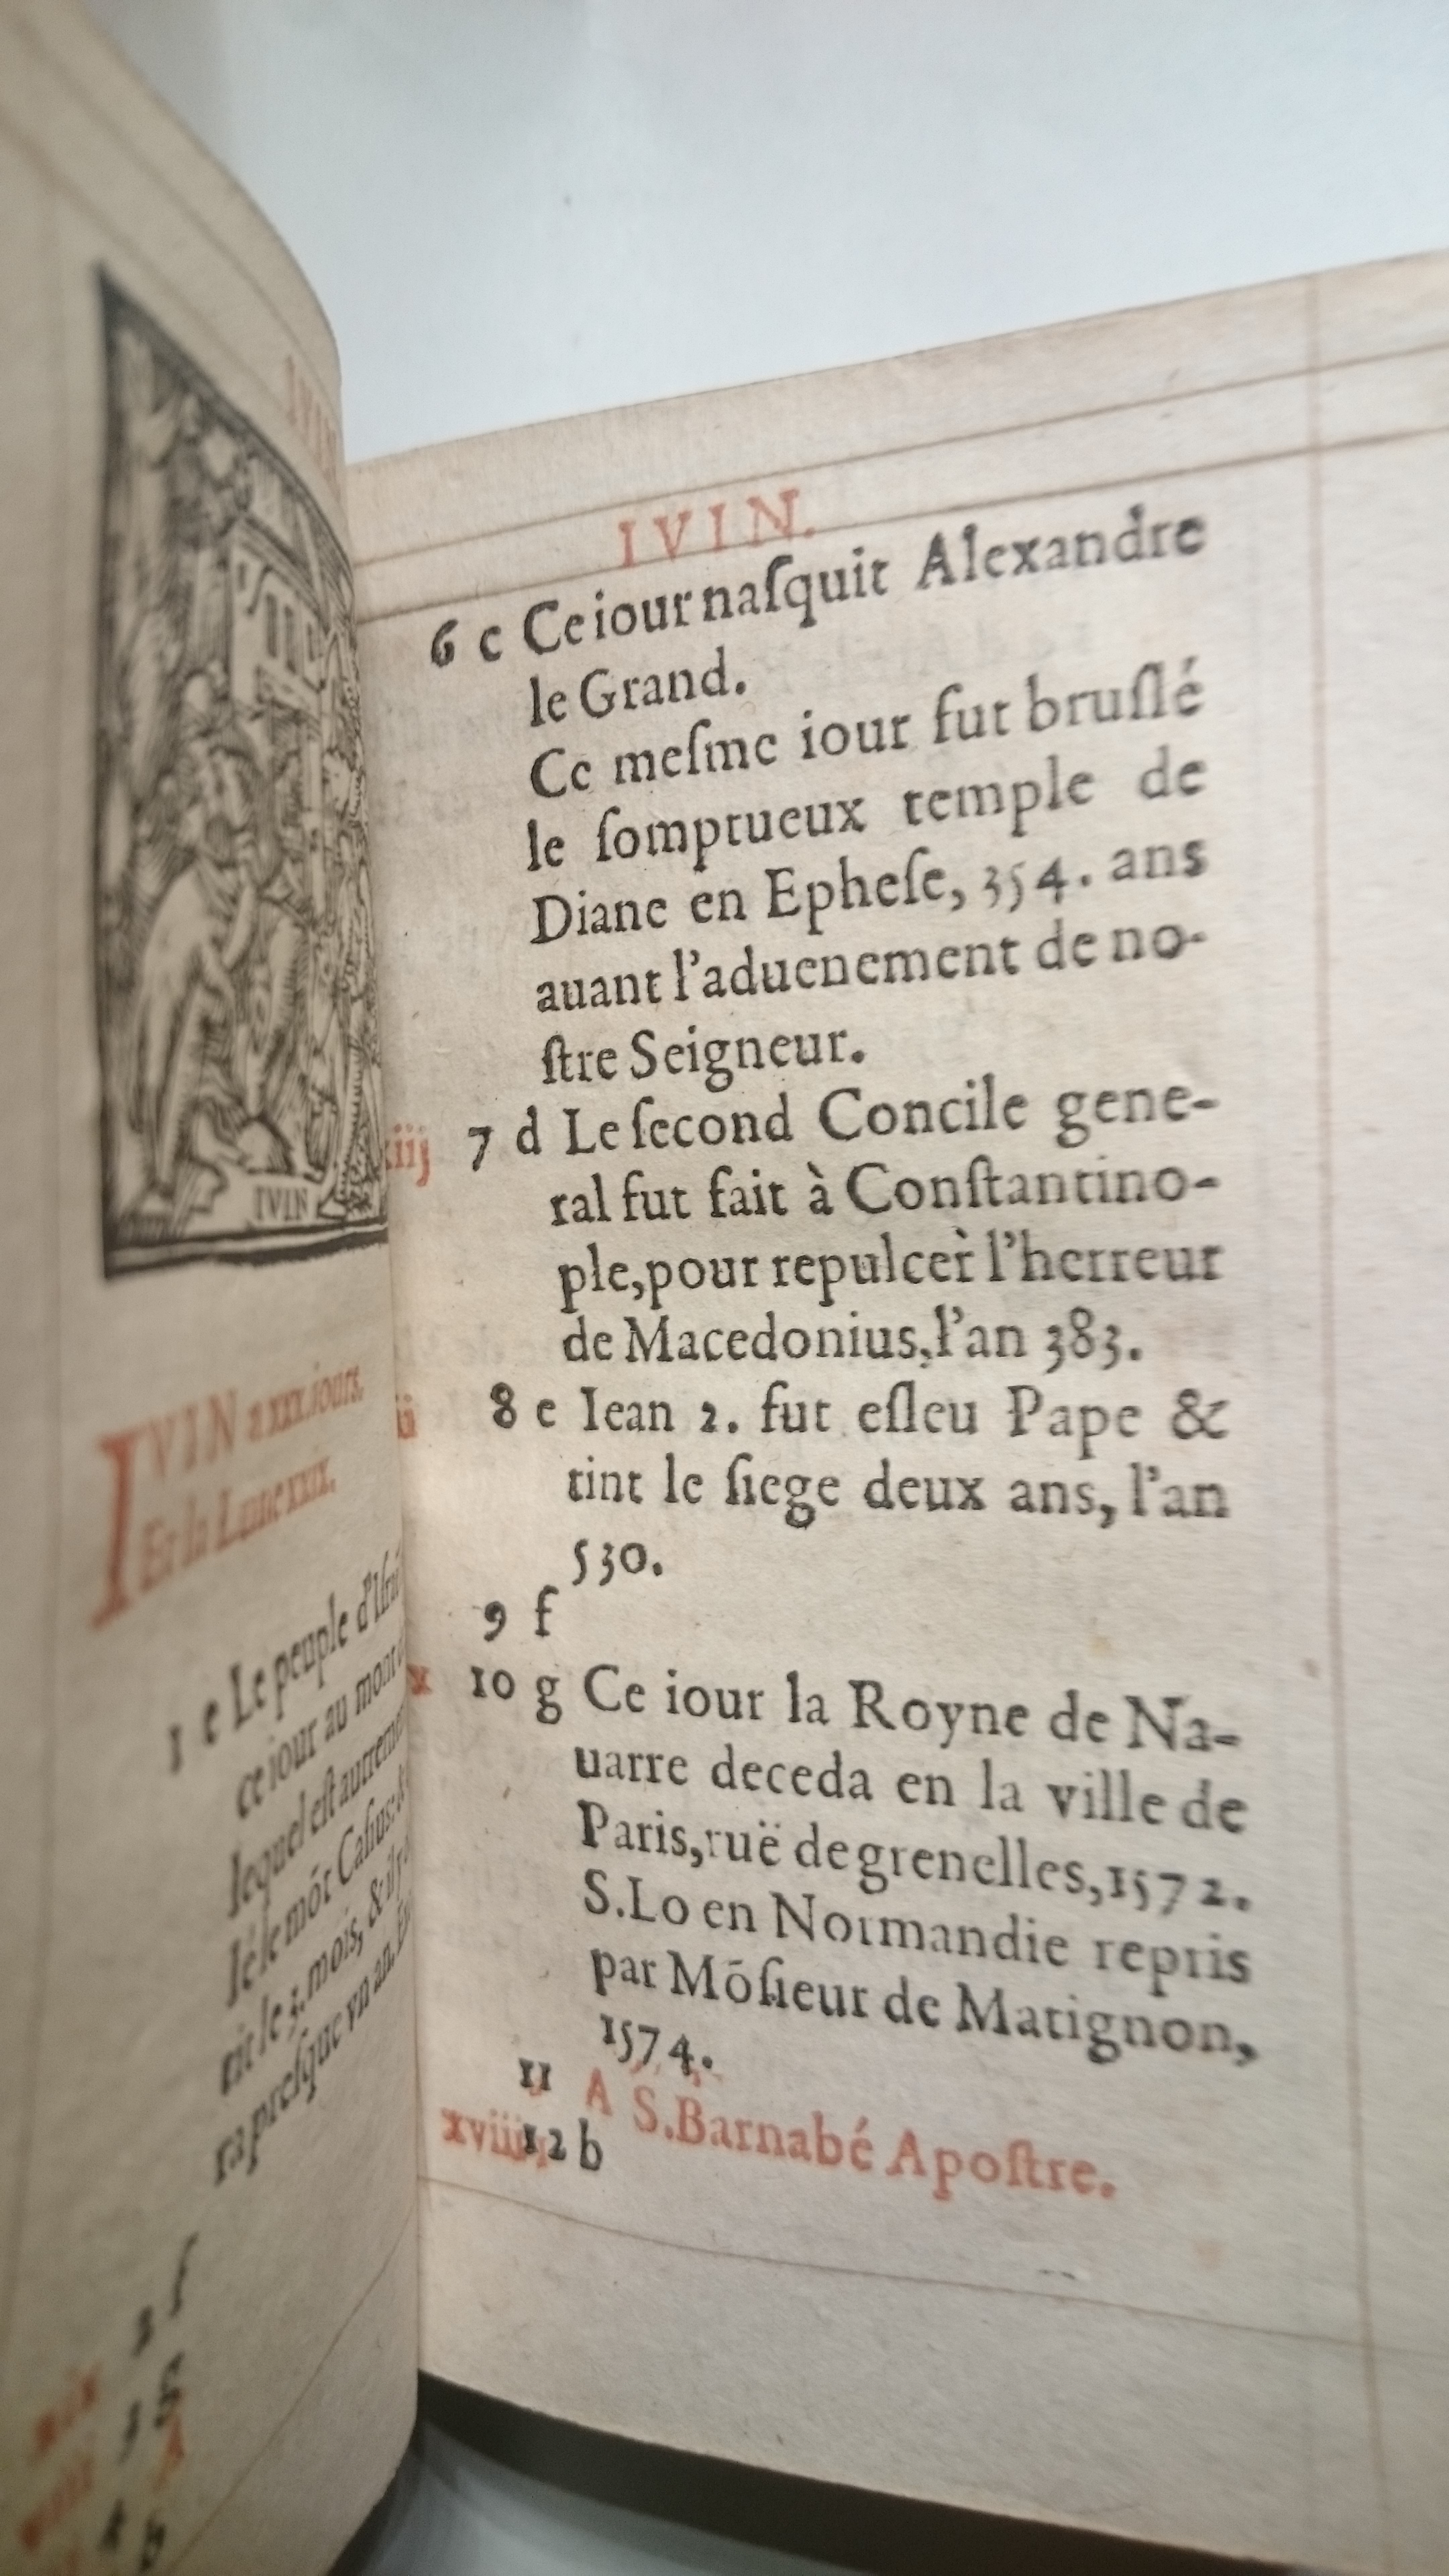 IVIN
IVIN a xxx.iours.
Et la Lune xxix.
1 e Le peuple
ce iour au mont
lequel est autrement
le mōt Casius:
le 3. mois, &
presque vn an.
IVIN.
6 c Ce iour naſquit Alexandre
le Grand.
Ce meſme iour fut bruſlé
le ſomptueux temple de
Diane en Epheſe, 354. ans
auant l'aduenement de no-
ſtre Seigneur.
iij 7 d Le ſecond Concile gene-
ral fut fait à Conſtantino-
ple,pour repulcer l'herreur
de Macedonius,l'an 383.
ii 8 e Iean 2. fut eſleu Pape &
tint le ſiege deux ans, l'an
530.
9 f
x 10 g Ce iour la Royne de Na-
uarre deceda en la ville de
Paris,ruë de grenelles,1572.
S.Lo en Normandie repris
par Mōſieur de Matignon,
1574.
11 A S.Barnabé Apoſtre.
12 b